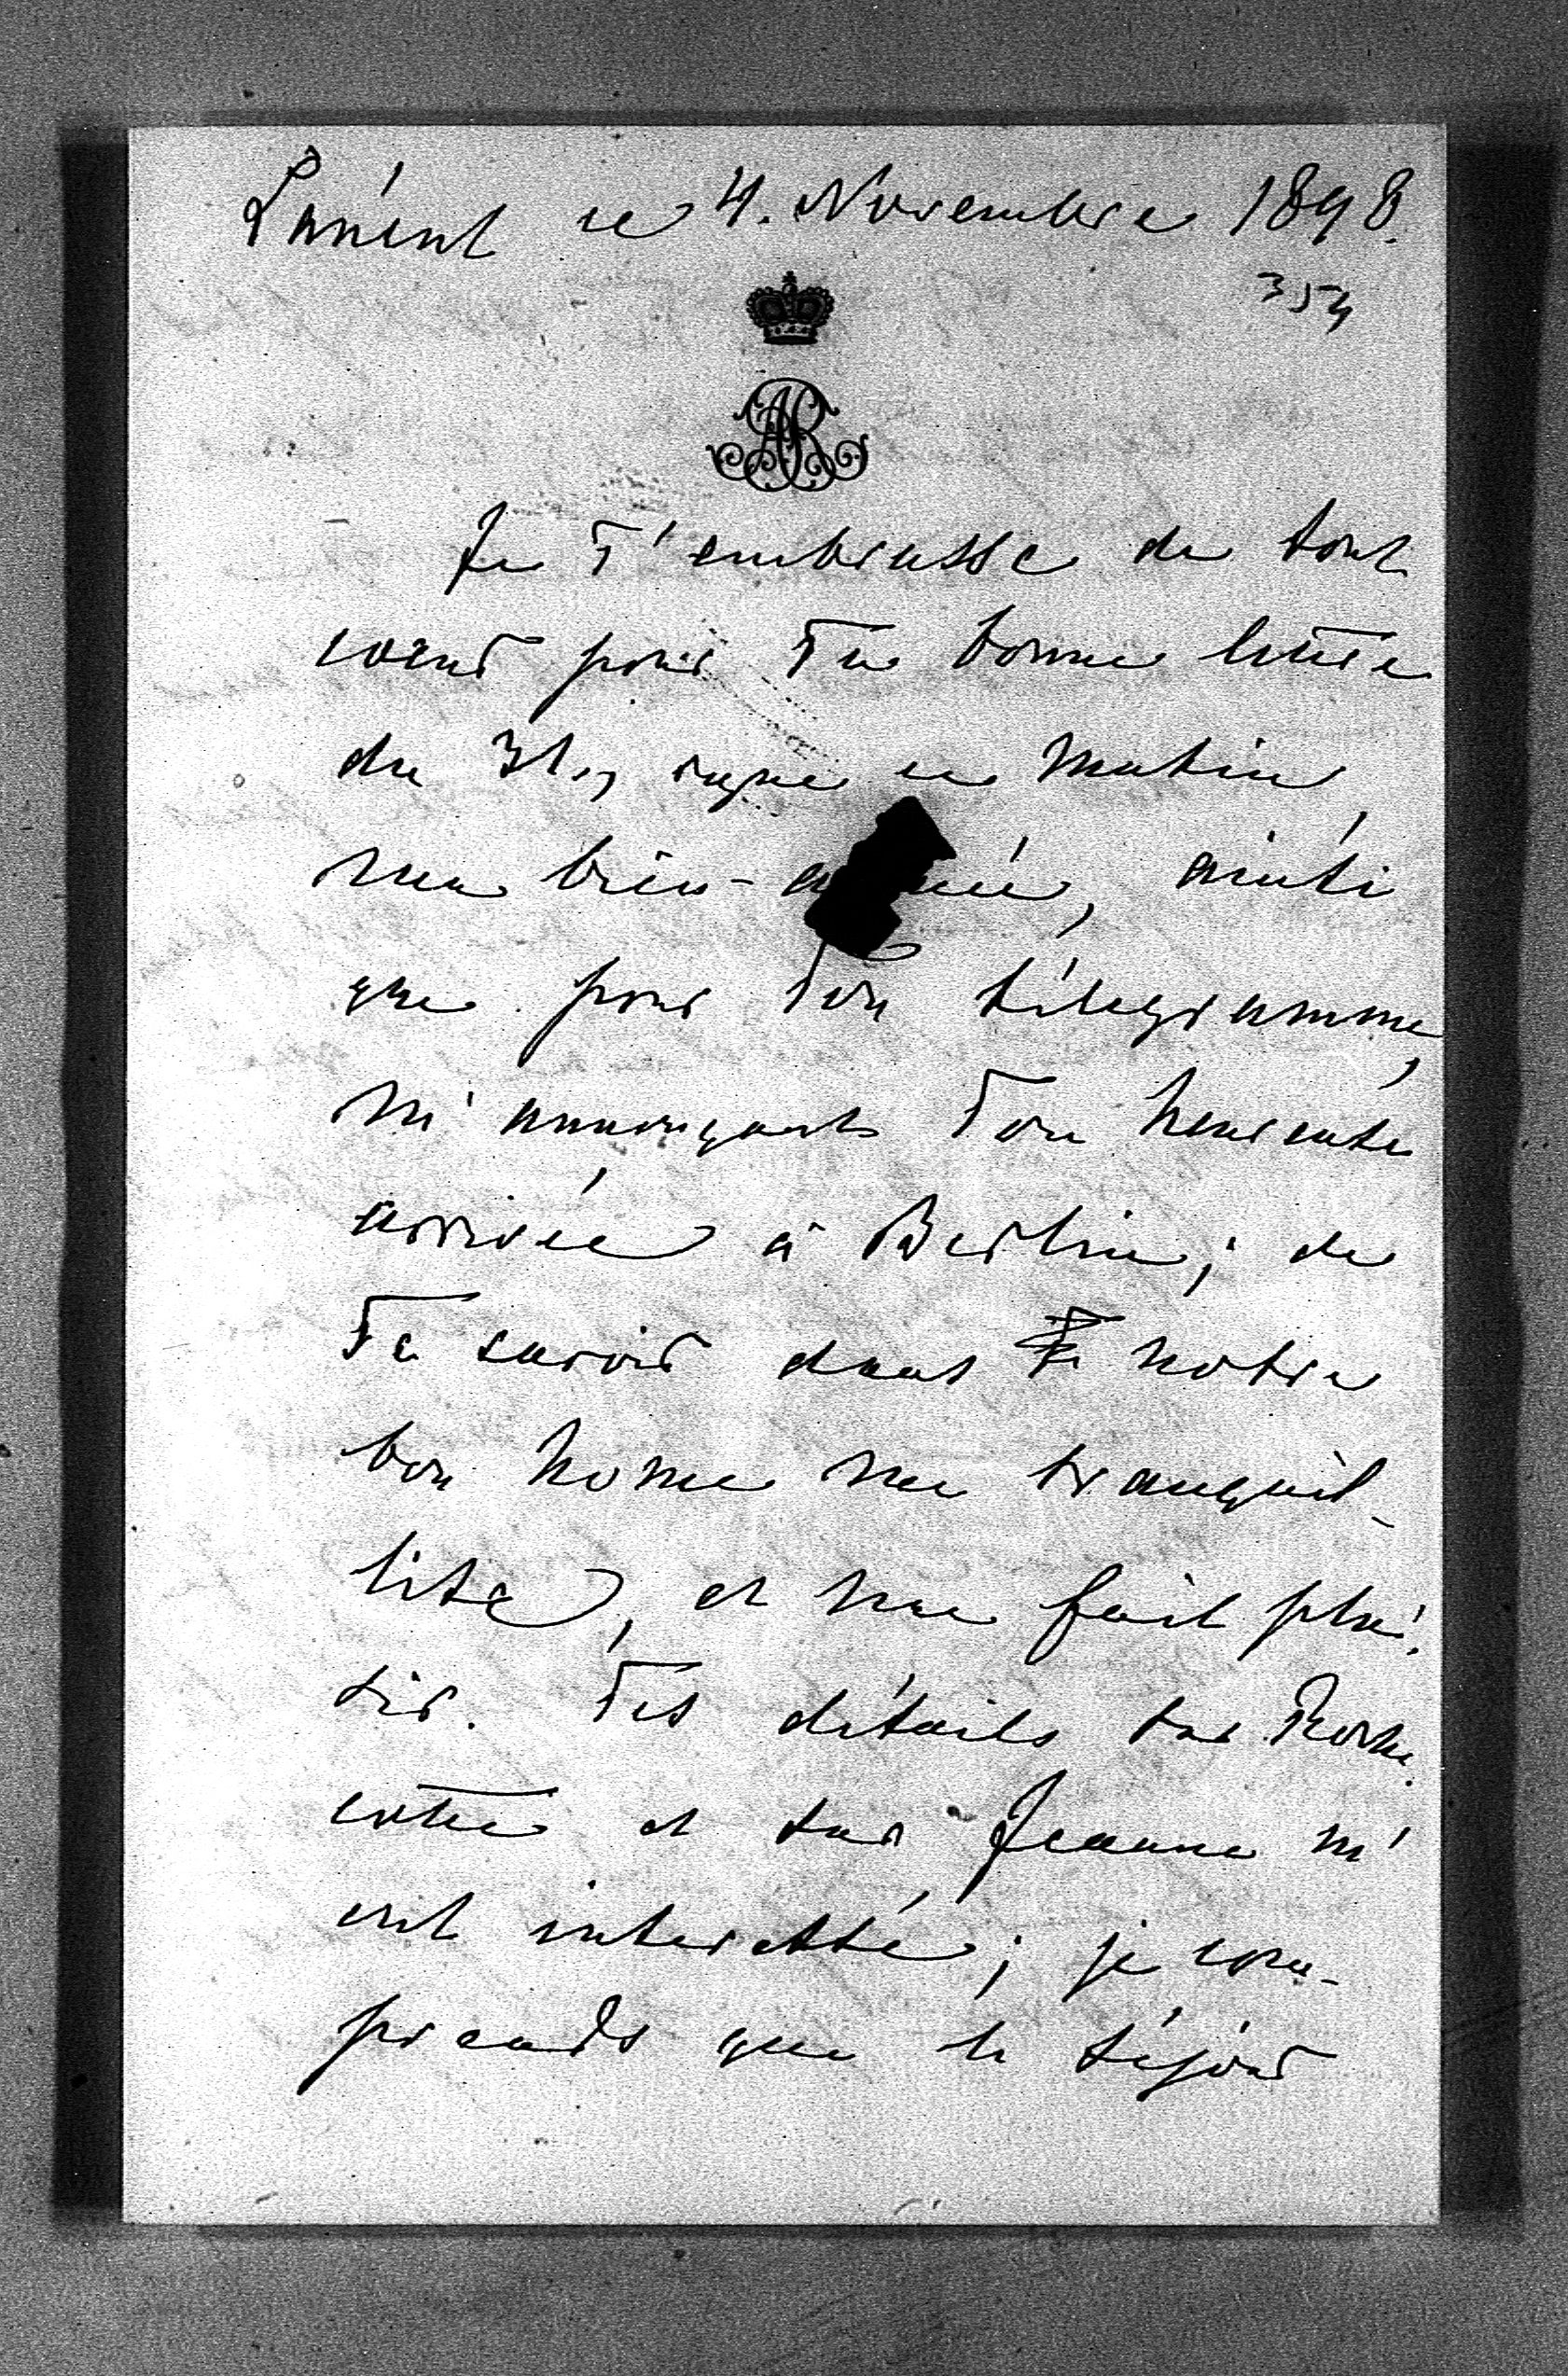 Lancut ce 4. Novembre 1898.
354
AR
Je T'embrasse de tout
coeur pour Ta bonne lettre
du 31, reçue ce matin,
ma bien-aimée, ainsi
que pour Ton télegramme,
m'annonçant Ton heureuse
arrivée à Berlin; de
Te savoir dans notre
bon home me tranquil-
lise, et me fait plai-
sir. Tes détails sur Roche-
cotte et sur Jeanne m'
ont interessé; je com-
prends que le séjour